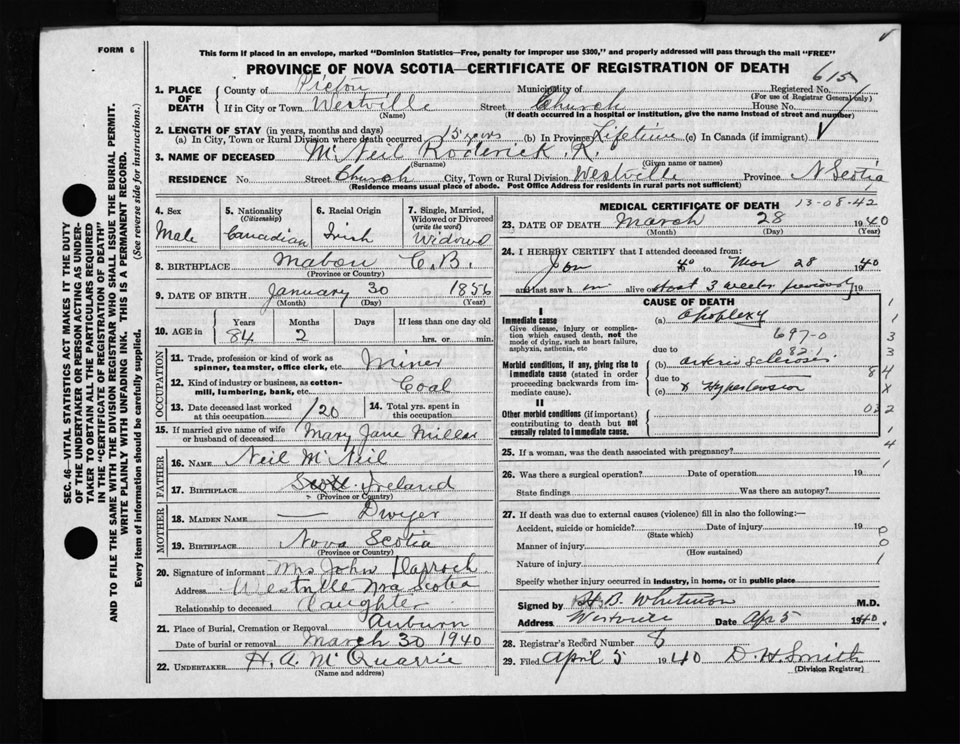 FORM 6
This form if placed in an envelope, marked "Dominion Statistics—Free, penalty for improper use $300," and properly addressed will pass through the mail "FREE"
PROVINCE OF NOVA SCOTIA—CERTIFICATE OF REGISTRATION OF DEATH
615
1. PLACE OF DEATH County of Pictou Municipality of Registered No. (For use of Registrar General only)
If in City or Town Westville (Name) Street Church House No.
(If death occurred in a hospital or institution, give the name instead of street and number)
2. LENGTH OF STAY (in years, months and days)
(a) In City, Town or Rural Division where death occurred 15 years (b) In Province Lifetime (c) In Canada (if immigrant)
3. NAME OF DECEASED McNeil Roderick R.
(Surname) (Given name or names)
RESIDENCE No. Street Church City, Town or Rural Division Westville Province N Scotia
(Residence means usual place of abode. Post Office Address for residents in rural parts not sufficient)
4. Sex Male
5. Nationality (Citizenship) Canadian
6. Racial Origin Irish
7. Single, Married, Widowed or Divorced (write the word) Widowd
8. BIRTHPLACE Mabou C.B.
(Province or Country)
9. DATE OF BIRTH January 30 1856
(Month) (Day) (Year)
10. AGE in Years 84 Months 2 Days If less than one day old hrs. or min.
OCCUPATION
11. Trade, profession or kind of work as spinner, teamster, office clerk, etc. Miner
12. Kind of industry or business, as cotton-mill, lumbering, bank, etc. Coal
13. Date deceased last worked at this occupation 1920
14. Total yrs. spent in this occupation
15. If married give name of wife or husband of deceased Mary Jane Miller
FATHER
16. NAME Neil McNeil
17. BIRTHPLACE Ireland
(Province or Country)
MOTHER
18. MAIDEN NAME — Dwyer
19. BIRTHPLACE Nova Scotia
(Province or Country)
20. Signature of informant Mrs John
Address Westville Nova Scotia
Relationship to deceased daughter
21. Place of Burial, Cremation or Removal Auburn
Date of burial or removal March 30 1940
22. UNDERTAKER H. A. McQuarrie
(Name and address)
MEDICAL CERTIFICATE OF DEATH 13-08-42
23. DATE OF DEATH March 28 1940
(Month) (Day) (Year)
24. I HEREBY CERTIFY that I attended deceased from:
Jan 1940 to Mar 28 1940
and last saw h im alive on 3 weeks previously 19
CAUSE OF DEATH
I
Immediate cause
Give disease, injury or complication which caused death, not the mode of dying, such as heart failure, asphyxia, asthenia, etc
(a) Apoplexy
697-0
due to 821
Morbid conditions, if any, giving rise to immediate cause (stated in order proceeding backwards from immediate cause).
(b) arterio sclerosis
due to
(c) Hypertension
II
Other morbid conditions (if important) contributing to death but not causally related to immediate cause.
1
1
3
3
84
X
032
1
4
1
25. If a woman, was the death associated with pregnancy?
26. Was there a surgical operation? Date of operation 19
State findings Was there an autopsy?
27. If death was due to external causes (violence) fill in also the following:—
Accident, suicide or homicide? Date of injury 19
(State which)
Manner of injury
(How sustained)
Nature of injury
0
0
1
Specify whether injury occurred in industry, in home, or in public place
Signed by H.B. Whitman M.D.
Address Westville Date Apr 5 1940.
28. Registrar's Record Number 8
29. Filed April 5 1940 D. H. Smith
(Division Registrar)
SEC. 46—VITAL STATISTICS ACT MAKES IT THE DUTY
OF THE UNDERTAKER OR PERSON ACTING AS UNDERTAKER TO OBTAIN ALL THE PARTICULARS REQUIRED
IN THE "CERTIFICATE OF REGISTRATION OF DEATH"
AND TO FILE THE SAME WITH THE DIVISION REGISTRAR WHO SHALL ISSUE THE BURIAL PERMIT.
WRITE PLAINLY WITH UNFADING INK. THIS IS A PERMANENT RECORD.
Every item of information should be carefully supplied. (See reverse side for instructions.)